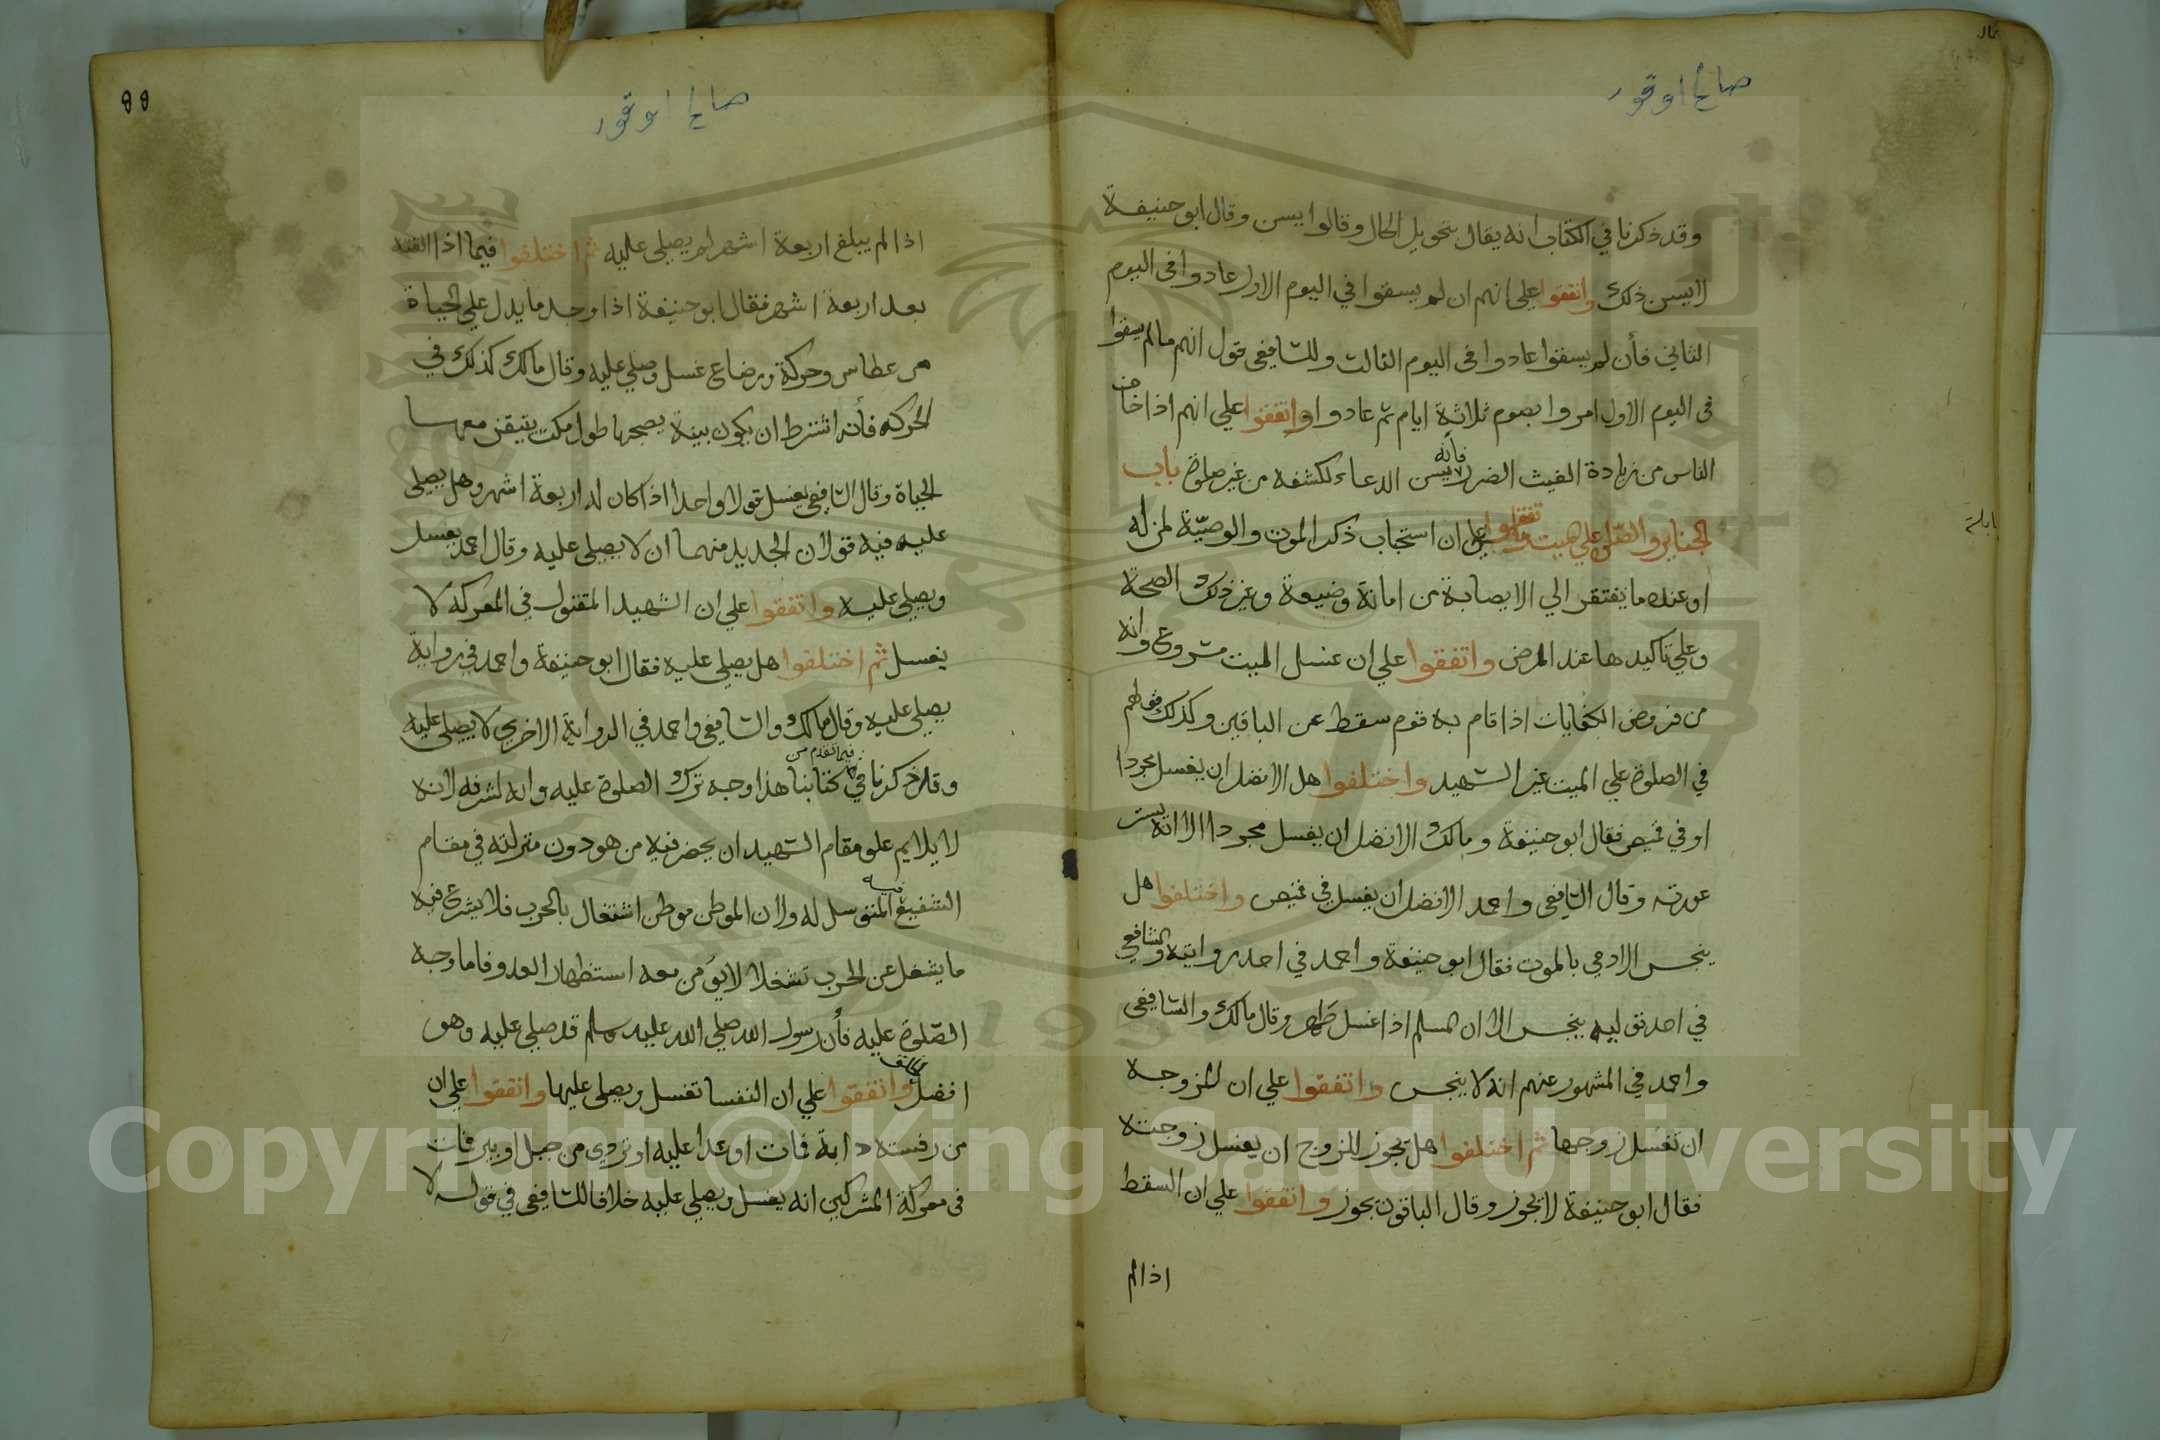 صالح اوقور
وقد ذكرنا في الكتاب انه يقال بتحويل الحال وقالوا يسن وقال ابو حنيفة
لا يسن ذلك واتفقوا على انهم ان لم يسقوا في اليوم الاول عادوا في اليوم
الثاني فأن لم يسقوا عادوا في اليوم الثالث وللشافعي قول انهم مالم يسقوا
في اليوم الاول امروا بصوم ثلاثة ايام ثم عادوا واتفقوا علي انهم اذا خاف
الناس من زيادة الغيث الضرر فانه يسن الدعاء لكشفه من غير صلوة باب
الجنايز والصلوة علي الميت واتفقوا على ان استحباب ذكر الموت والوصية لمن له
او عنده ما يفتقر الي الايصا به من امانة وضيعة وغير ذلك الصحة
وعلي تاكيدها عند المرض واتفقوا علي ان غسل الميت مشروع وانه
من فروض الكفايات اذا قام به قوم سقط عن الباقين وكذلك قولهم
في الصلوة علي الميت غير الشهيد واختلفوا هل الافضل ان يغسل مجردا
او في قميص فقال ابو حنيفة ومالك الافضل ان يغسل مجردا الا انه يستر
عورته وقال الشافعي واحمد الافضل ان يغسل في قميص واختلفوا هل
ينجس الادمي بالموت فقال ابو حنيفة واحمد في احد روايتيه والشافعي
في احد قوليه ينجس الا ان المسلم اذا غسل طهر وقال مالك والشافعي
واحمد في المشهور عنهم انه لا ينجس واتفقوا علي ان للزوجة
ان تغسل زوجها ثم اختلفوا هل يجوز للزوج ان يغسل زوجته
فقال ابو حنيفة لا يجوز وقال الباقون يجوز واتفقوا علي ان السقط
اذا لم
٥٥
صالح اوقور
اذا لم يبلغ اربعة اشهر لم يصلى عليه ثم اختلفوا فيما اذا القته
بعد اربعة اشهر فقال ابو حنيفة اذا وجد ما يدل علي الحياة
من عطاس وحركة ورضاع غسل وصلي عليه وقال مالك كذلك في
الحركة فأنه اشترط ان يكون بينة يصحبها طول مكث يتيقن معها
الحياة وقال الشافعي يغسل قولا واحدا اذا كان له اربعة اشهر وهل يصلى
عليه فيه قولان الجديد منهما ان لا يصلى عليه وقال احمد يغسل
ويصلى عليه واتفقوا علي ان الشهيد المقتول في المعركة لا
يغسل ثم اختلفوا هل يصلى عليه فقال ابو حنيفة واحمد في رواية
يصلى عليه وقال مالك والشافعي واحمد في الرواية الاخري لا يصلى عليه
وقد ذكرنا فيما تقدم من كتابنا هذا وجه ترك الصلوة عليه وانه لشرفه لانه
لا يلايم علو مقام الشهيد ان يحضر فيه من هو دون منزلته في مقام
الشفيع فيه المتوسل له ولان الموطن موطن اشتغال بالحرب فلا يشرع فيه
ما يشغل عن الحرب تشغلا لا يؤمن معه استظهار العدو فاما وجه
الصلوة عليه فأن رسول الله صلي الله عليه وسلم قد صلي عليه وهو
افضل واتفقوا علي ان النفسا تغسل ويصلى عليها واتفقوا على ان
من رفسته دابة فمات او عدا عليه او تردى من جبل او بير فمات
في معركة المشركين انه يغسل ويصلي عليه خلافا للشافعي في قوله لا
Copyright © King Saud University
1957